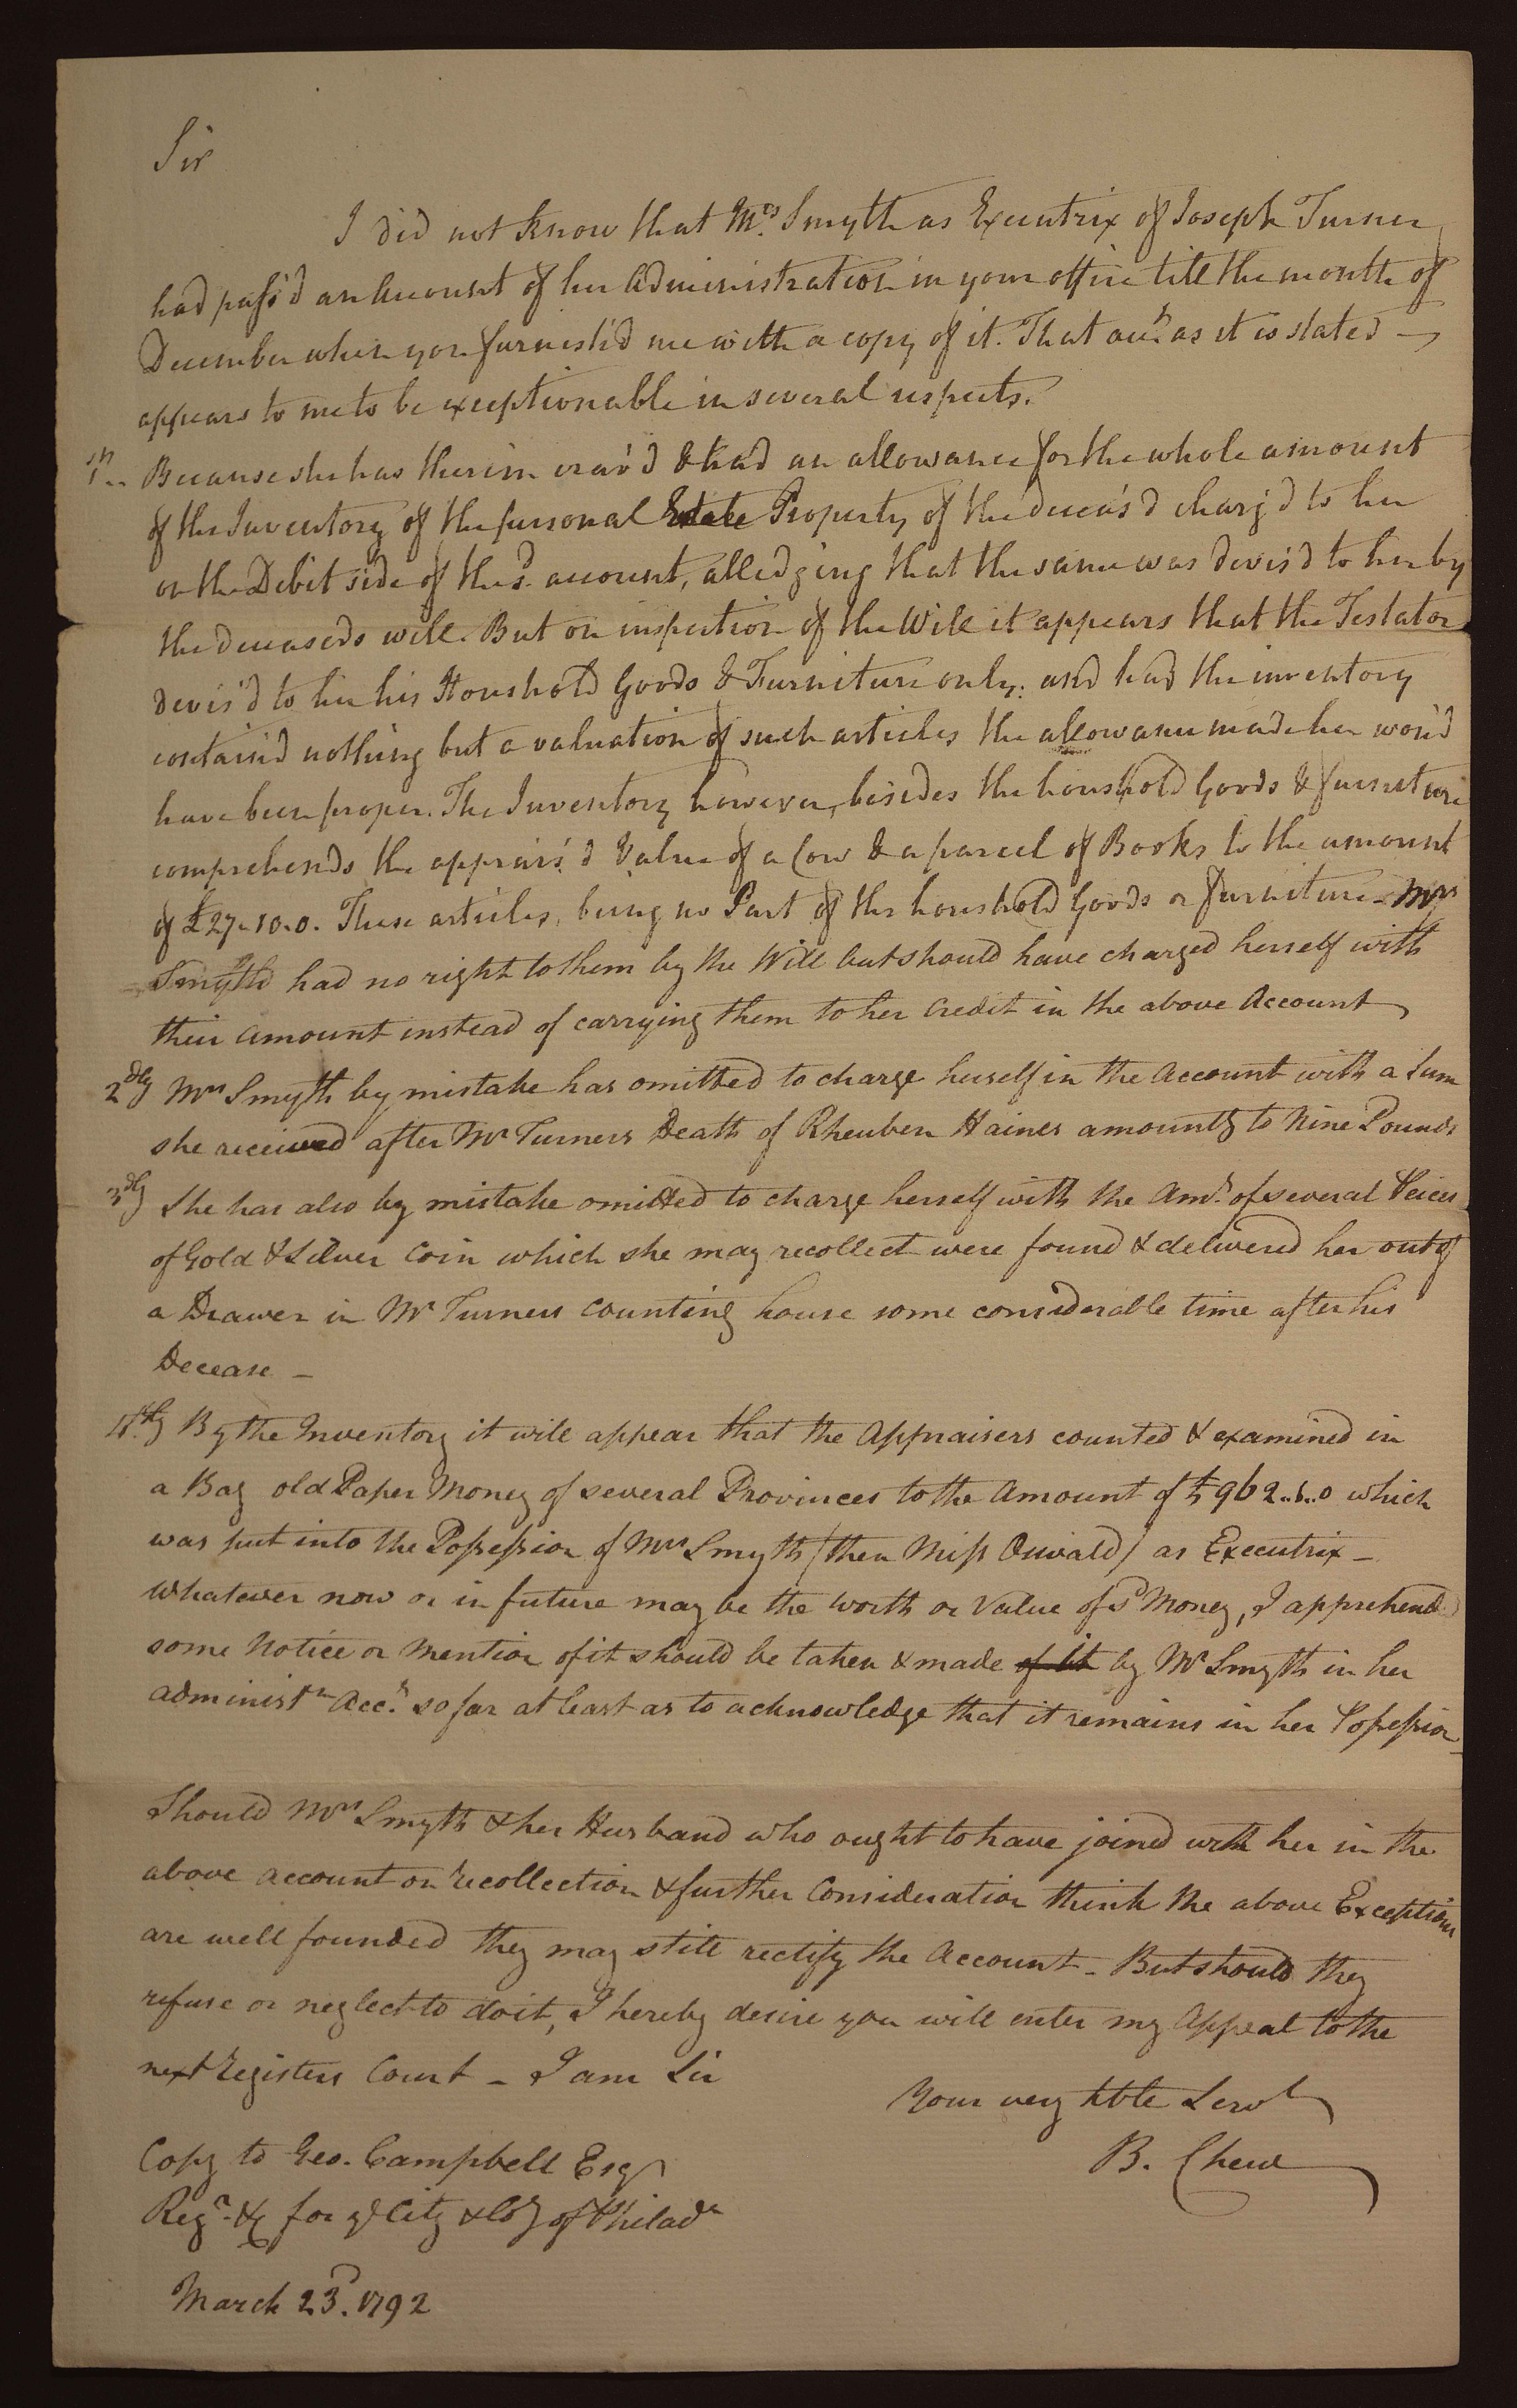 Sir
I did not know that Mrs. Smyth as Executrix of Joseph Turner
had pass'd an Account of her Administration in your office till the month of
December when you furnish'd me with a copy of it. That acct. as it is stated —
appears to me to be exceptionable in several respects.
1st.. Because she has therein crav'd & had an allowance for the whole amount
of the Inventory of the personal Estate Property of the deceas'd charg'd to her
on the Debit side of the sd. account, alledging that the same was devis'd to her by
the deceaseds will. But on inspection of the Will it appears that the Testator
devis'd to her his Houshold Goods & Furniture only: and had the inventory
contain'd nothing but a valuation of such articles the allowance made her wou'd
have been proper. The Inventory however, besides the houshold Goods & furniture
comprehends the apprais'd Value of a Cow & a parcel of Books to the amount
of £27-10.0. These articles, being no Part of the houshold Goods or furniture - Mrs
Smyth had no right to them by the Will but should have charged herself with
their amount instead of carrying them to her Credit in the above Account
2dly Mrs Smyth by mistake has omitted to charge herself in the Account with a Sum
she received after Mr Turners Death of Rheuben Haines amountg to Nine Pounds
3dly She has also by mistake omitted to charge herself with the Amt. of several Peices
of Gold & Silver Coin which she may recollect were found & delivered her out of
a Drawer in Mr Turners Counting house some considerable time after his
Decease —
4thly By the Inventory it will appear that the Appraisers counted & examined in
a Bag old Paper Money of several Provinces to the Amount of £962..6..0 which
was put into the Possession of Mrs Smyth (then Miss Oswald) as Executrix —
Whatever now or in future may be the Worth or Value of sd Money, I apprehend
some Notice or Mention of it should be taken & made of it by Mrs Smyth in her
administn Acct. so far at least as to acknowledge that it remains in her Possession —
Should Mrs Smyth & her Husband who ought to have joined with her in the
above account on recollection & further Consideration think the above Exceptions
are well founded they may still rectify the Account - But should they
refuse or neglect to do it, I hereby desire you will enter my Appeal to the
next Registers Court - I am Sir
Your very hble Servt
B. Chew
Copy to Geo. Campbell Esqr
Regr. &c for ye City & Coy of Philada
March 23d. 1792